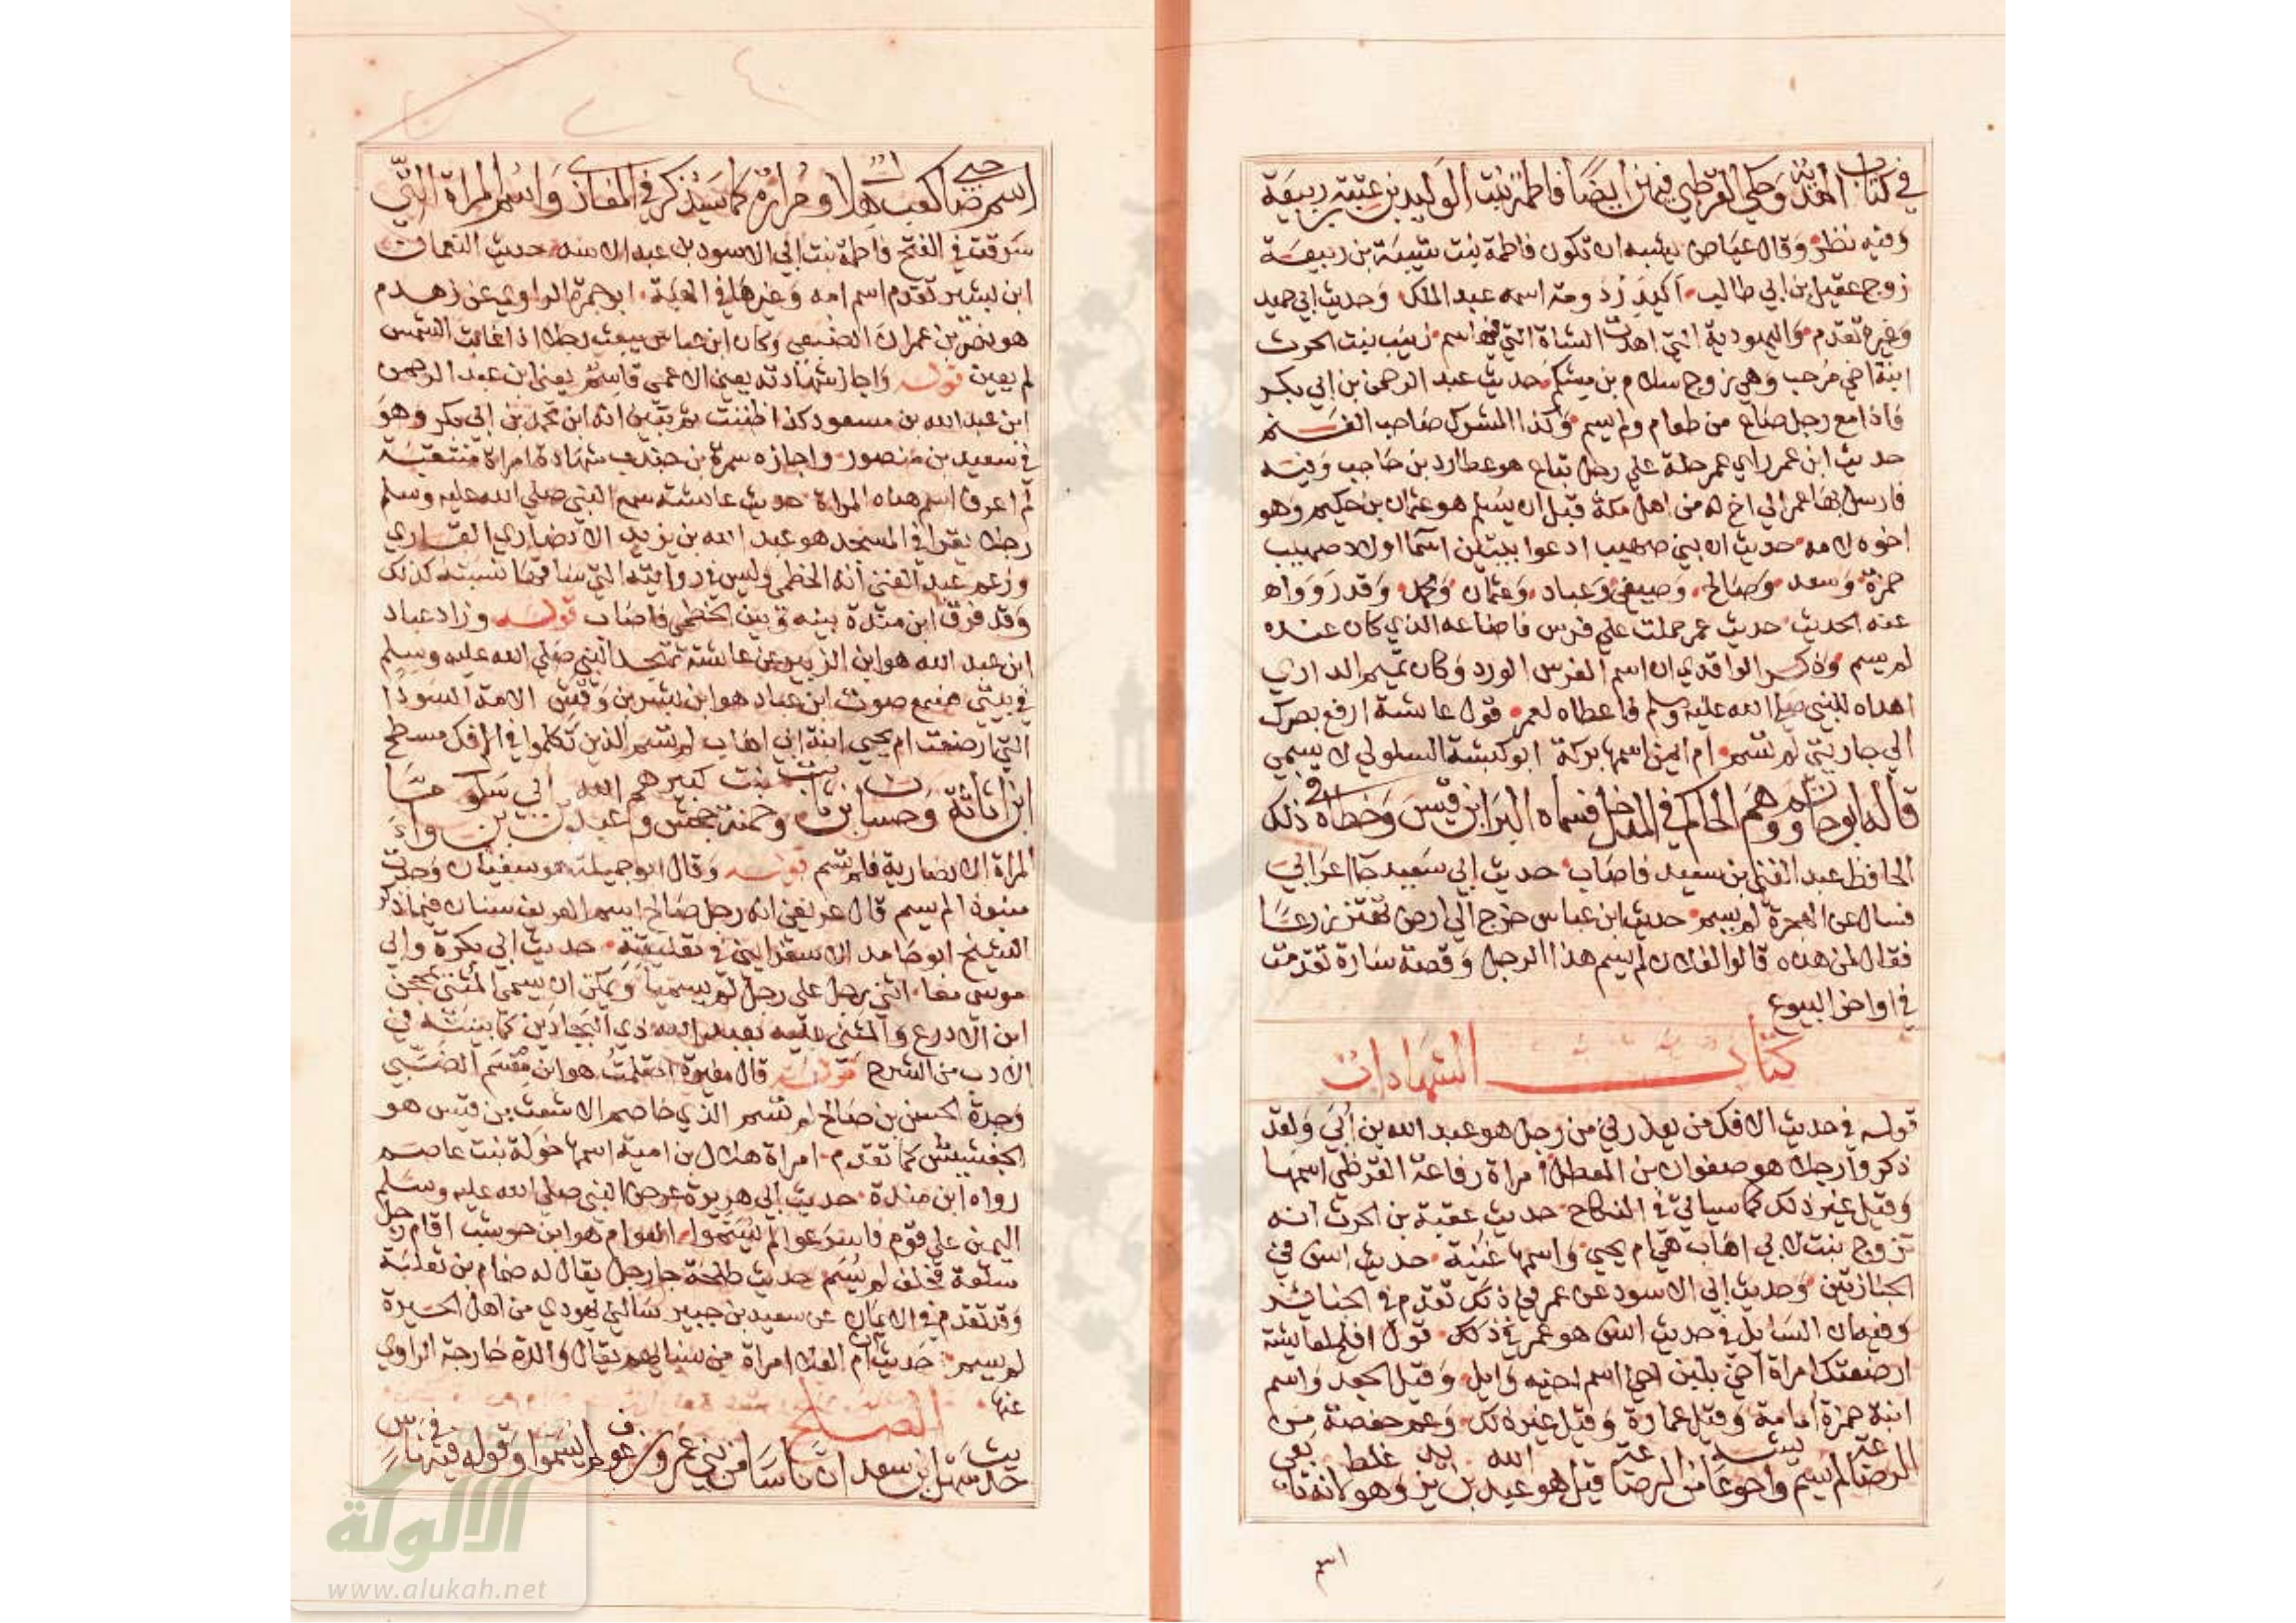 في كتاب الهدية وحكى القرطبي فيهن ايضا فاطمة بنت الوليد بن عتبة بن ربيعة
وفيه نظر وقال عياض يشبه ان تكون فاطمة بنت شيبة بن ربيعة
زوج عقيل بن ابي طالب اكيدر دومة اسمه عبد الملك وحديث ابي حميد
وغيره تقدم واليهودية التي اهدت الشاة التي اسم زينب بنت الحرث
ابنة اخي مرحب وهي زوج سلام بن مشكم حديث عبد الرحمن بن ابي بكر
فاذا مع رجل صاع من طعام ولم يسم وكذا المشرك صاحب الغنم
حديث ابن عمر راي عمر حلة على رجل تباع هو عطارد بن حاجب وفيه
فارسل بها عمر الي اخ له من اهل مكة قبل ان يسلم هو عثمان بن حكيم وهو
اخوه لامه حديث ان بني صهيب ادعوا بيتين اسما اولاد صهيب
حمزة وسعد وصالح وصيفي وعباد وعثمان ومحمد وقد رووا
عنه الحديث حديث عمر حملت علي فرس فاضاعه الذي كان عنده
لم يسم وذكر الواقدي ان اسم الفرس الورد وكان تميم الداري
اهداه للنبي صلى الله عليه وسلم فاعطاه لعمر قول عائشة ارفع بصرك
الي جاريتي لم تسم ام ايمن اسمها بركة ابو كبشة السلولي لا يسمي
قاله ابو حاتم ووهم الحاكم في المدخل فسماه البرا بن قيس وخطاه في ذلك
الحافظ عبد الغني بن سعيد فاصاب حديث ابي سعيد جا اعرابي
فسال عن الهجرة لم يسم حديث ابن عباس خرج الي ارض تهتز زرعا
فقال لمن هذه قالوا لفلان لم يسم هذا الرجل وقصة سارة تقدمت
في اواخر البيوع
كتاب الشهادات
قوله في حديث الافك من يعذرني من رجل هو عبد الله بن ابي ولقد
ذكروا رجلا هو صفوان بن المعطل امراة رفاعة القرظي اسمها
وقيل غير ذلك كما سياتي في النكاح حديث عقبة بن الحرث انه
تزوج بنت لابي اهاب هي ام يحيي واسمها غنية حديث انس في
الجنازتين وحديث ابي الاسود عن عمر في ذلك تقدم في الجنائز
وفيه ان السايل في حديث انس هو عمر في ذلك قول افلح لعايشة
ارضعتك امراة اخي بلبن اخي اسم اخيه وايل وقيل الجعد واسم
ابنة حمزة امامة وقيل عمارة وقيل غير ذلك وعم حفصة من
الرضاعة لم يسم واخو عائشة من الرضاعة قيل هو عبد الله بن يزيد وهو غلط لانه تابعي
اسم
اسم صاحبي كعب هلال ومرارة كما سيذكر في المغازي واسم المراة التي
سرقت في الفتح فاطمة بنت ابي الاسود بن عبد الاسد حديث النعمان
ابن بشير تقدم اسم امه وغيرها في الهبة ابو جمرة الراوي عن زهدم
هو نصر بن عمران الضبعي وكان ابن عباس يبعث رجلا اذا غابت الشمس
لم يعين قوله واجاز شهادته يعني الاعمي قاسم يعني ابن عبد الرحمن
ابن عبد الله بن مسعود كذا ظننت ثم تبين انه ابن محمد بن ابي بكر وهو
في سعيد بن منصور واجازه سمرة بن جندب شهادة امراة منتقبة
لم اعرف اسم هذه المراة حديث عائشة سمع النبي صلى الله عليه وسلم
رجلا يقرا في المسجد هو عبد الله بن يزيد الانصاري القاري
وزعم عبد الغني انه الخطمي وليس في روايته التي ساقها نسبته كذلك
وقد فرق ابن مندة بينه وبين الخطمي فاصاب قوله وزاد عباد
ابن عبد الله هو ابن الزبير عن عائشة تهجد النبي صلى الله عليه وسلم
في بيتي فسمع صوت ابن عباد هو ابن بشر بن وقش الامة السودا
التي ارضعت ام يحيي ابنة ابي اهاب لم تسم الذين تكلموا في الافك مسطح
ابن اثاثة وحسان بن ثابت وحمنة بنت جحش وكبيرهم عبد الله بن ابي بن سلول وجاءت
المراة الانصارية فلم تسم قوله وقال ابو جميلة هو سفيان وجدت
منبوذا لم يسم قال عريفي انه رجل صالح اسم العريف سنان فيما ذكر
الشيخ ابو حامد الاسفرايني في تعليقه حديث ابي بكرة وابي
موسى معا اثني رجل على رجل لم يسميا ويمكن ان يسمي المثني بمحجن
ابن الادرع والمثني عليه بعبد الله ذي البجادين كما بينته في
الادب من الشرح قوله قال مغيرة احتلمت هو ابن مقسم الضبي
وجدة الحسن بن صالح لم تسم الذي خاصم الاشعث بن قيس هو
الجفشيش كما تقدم امراة هلال بن امية اسمها خولة بنت عاصم
رواه ابن مندة حديث ابي هريرة عرض النبي صلى الله عليه وسلم
اليمين علي قوم فاسرعوا لم يسموا العوام هو ابن حوشب اقام رجل
سلعة فحلف لم يسم حديث طلحة جا رجل يقال له ضمام بن ثعلبة
وقد تقدم في الايمان عن سعيد بن جبير سالني يهودي من اهل الحيرة
لم يسم حديث ام العلا امراة من نسائهم يقال والدة خارجة الراوي
عنها
الصلح
حديث سهل ابن سعد ان ناسا من بني عمرو بن عوف لم يسموا وقوله فيه في ناس
الألوكة
www.alukah.net